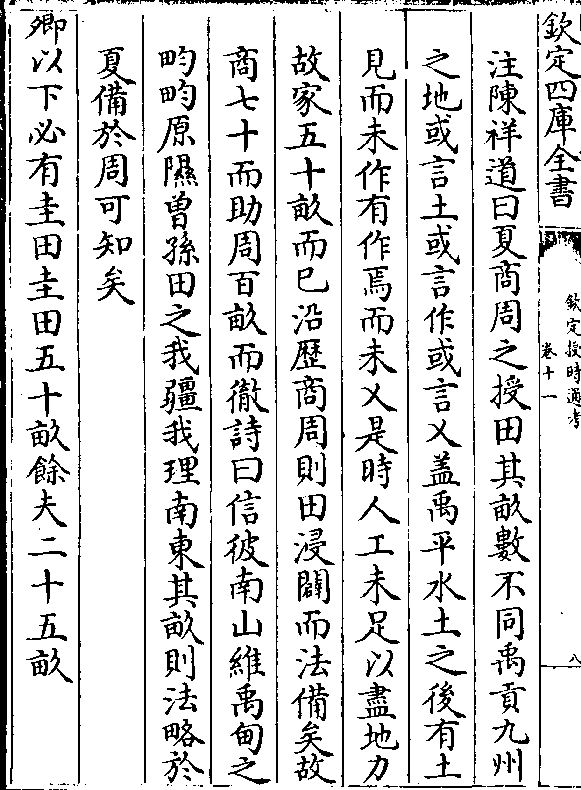 欽定四庫全書
欽定授時通考
卷十一
八
注陳祥道曰夏商周之授田其畝數不同禹貢九州
之地或言土或言作或言乂盖禹平水土之後有土
見而未作有作焉而未乂是時人工未足以盡地力
故家五十畝而已沿歴商周則田浸闢而法備矣故
商七十而助周百畝而徹詩曰信彼南山維禹甸之
畇畇原隰曽孫田之我疆我理南東其畝則法略於
夏備於周可知矣
卿以下必有圭田圭田五十畝餘夫二十五畝